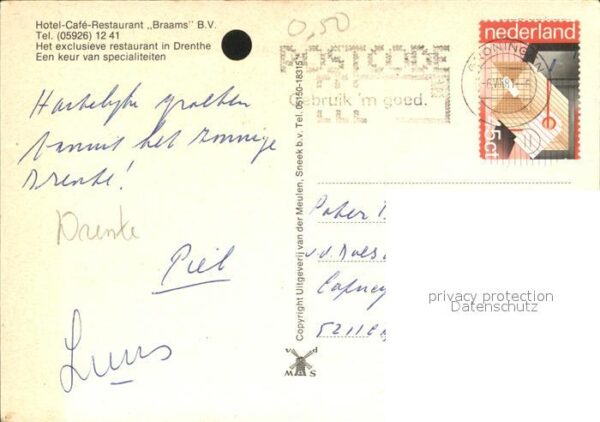 Hotel-Café-Restaurant „Braams" B.V.
Tel. (05926) 12 41
Het exclusieve restaurant in Drenthe
Een keur van specialiteiten
0,50
POSTCODE
Gebruik 'm goed.
GRONINGEN
nederland
45ct
Hartelijke groeten
vanuit het zonnige
Drente!
Drente
Piet
Copyright Uitgeverij van der Meulen, Sneek b.v. Tel. 05150-18315
Pater
v.d.
5211
privacy protection
Datenschutz
v d
M S